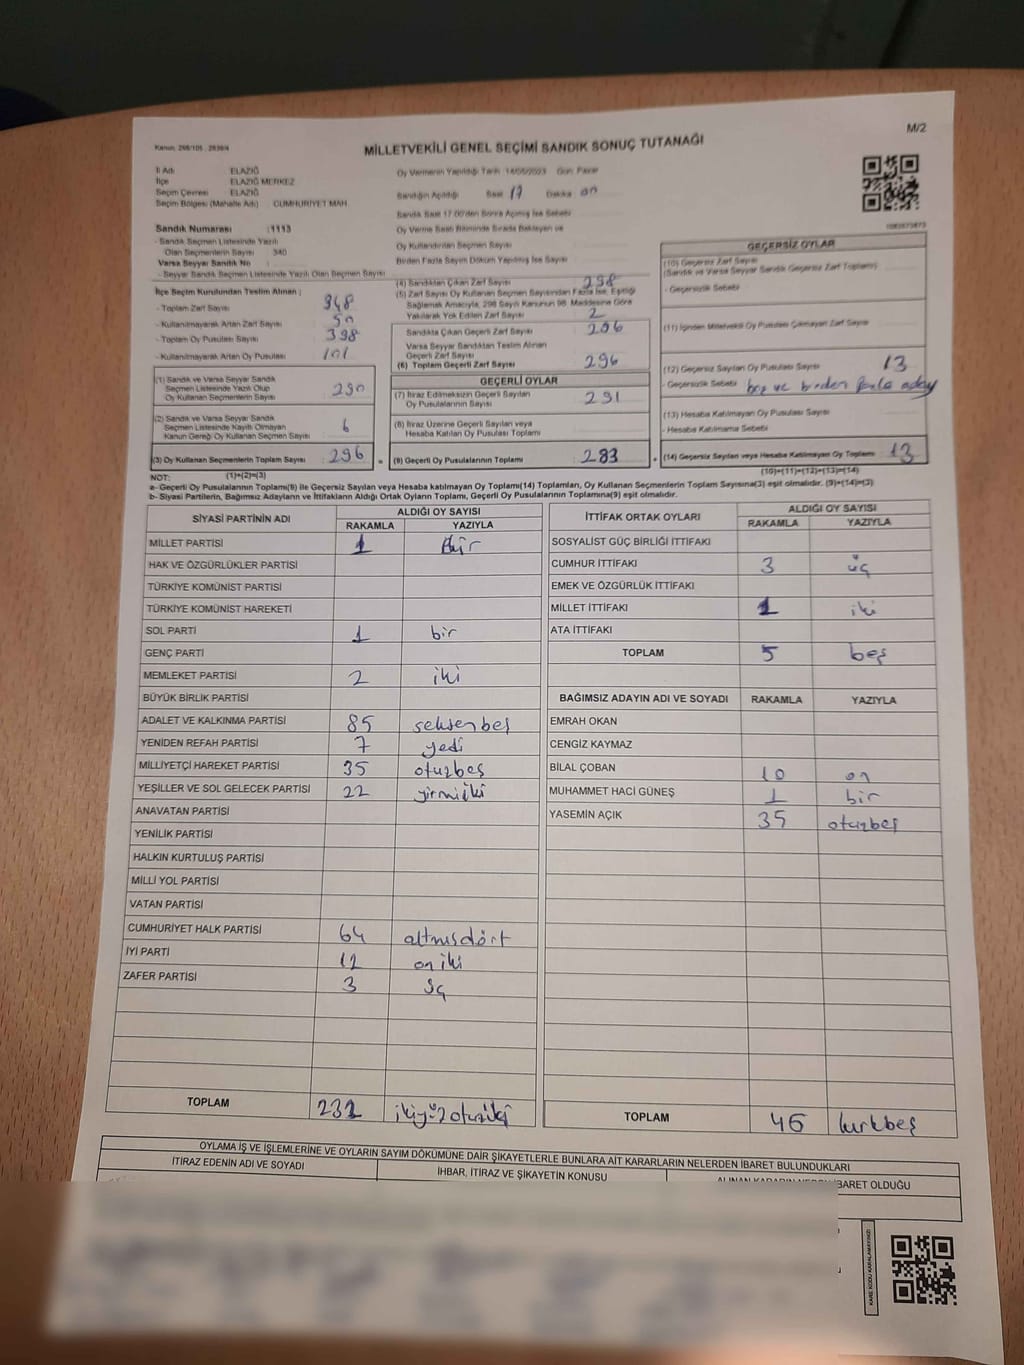 M/2
Kanun: 298/105 , 2839/4
MİLLETVEKİLİ GENEL SEÇİMİ SANDIK SONUÇ TUTANAĞI
İl Adı ELAZIĞ
İlçe ELAZIĞ MERKEZ
Seçim Çevresi ELAZIĞ
Seçim Bölgesi (Mahalle Adı) CUMHURİYET MAH.
Sandık Numarası :1113
- Sandık Seçmen Listesinde Yazılı
Olan Seçmenlerin Sayısı 340
Varsa Seyyar Sandık No
- Seyyar Sandık Seçmen Listesinde Yazılı Olan Seçmen Sayısı
Oy Vermenin Yapıldığı Tarih 14/05/2023 Gün Pazar
Sandığın Açıldığı Saat 17 Dakika on
Sandık Saat 17:00'den Sonra Açılmış İse Sebebi
Oy Verme Saati Bitiminde Sırada Bekleyen ve
Oy Kullandırılan Seçmen Sayısı
Birden Fazla Sayım Döküm Yapılmış İse Sayısı
İlçe Seçim Kurulundan Teslim Alınan :
- Toplam Zarf Sayısı 348
- Kullanılmayarak Artan Zarf Sayısı 50
- Toplam Oy Pusulası Sayısı 398
- Kullanılmayarak Artan Oy Pusulası 101
(1) Sandık ve Varsa Seyyar Sandık
Seçmen Listesinde Yazılı Olup
Oy Kullanan Seçmen Sayısı 290
(2) Sandık ve Varsa Seyyar Sandık
Seçmen Listesinde Kayıtlı Olmayan
Kanun Gereği Oy Kullanan Seçmen Sayısı 6
(3) Oy Kullanan Seçmenlerin Toplam Sayısı 296 =
(4) Sandıktan Çıkan Zarf Sayısı 298
(5) Zarf Sayısı Oy Kullanan Seçmen Sayısından Fazla İse, Eşitliği
Sağlamak Amacıyla, 298 Sayılı Kanunun 98. Maddesine Göre
Yakılarak Yok Edilen Zarf Sayısı 2
Sandıkta Çıkan Geçerli Zarf Sayısı 296
Varsa Seyyar Sandıktan Teslim Alınan
Geçerli Zarf Sayısı
(6) Toplam Geçerli Zarf Sayısı 296
GEÇERLİ OYLAR
(7) İtiraz Edilmeksizin Geçerli Sayılan
Oy Pusulalarının Sayısı 291
(8) İtiraz Üzerine Geçerli Sayılan veya
Hesaba Katılan Oy Pusulası Toplamı
(9) Geçerli Oy Pusulalarının Toplamı 283 +
GEÇERSİZ OYLAR
(10) Geçersiz Zarf Sayısı
(Sandık ve Varsa Seyyar Sandık Geçersiz Zarf Toplamı)
- Geçersizlik Sebebi
(11) İçinden Milletvekili Oy Pusulası Çıkmayan Zarf Sayısı
(12) Geçersiz Sayılan Oy Pusulası Sayısı 13
- Geçersizlik Sebebi boş ve birden fazla aday
(13) Hesaba Katılmayan Oy Pusulası Sayısı
- Hesaba Katılmama Sebebi
(14) Geçersiz Sayılan veya Hesaba Katılmayan Oy Toplamı 13
NOT: (1)+(2)=(3) (10)+(11)+(12)+(13)=(14)
a- Geçerli Oy Pusulaları Toplamı(9) ile Geçersiz Sayılan veya Hesaba Katılmayan Oy Toplamı(14) Toplamları, Oy Kullanan Seçmenlerin Toplam Sayısına(3) eşit olmalıdır. (9)+(14)=(3)
b- Siyasi Partilerin, Bağımsız Adayların ve İttifakların Aldığı Ortak Oyların Toplamı, Geçerli Oy Pusulalarının Toplamına(9) eşit olmalıdır.
SİYASİ PARTİNİN ADI ALDIĞI OY SAYISI
RAKAMLA YAZIYLA
MİLLET PARTİSİ 1 Bir
HAK VE ÖZGÜRLÜKLER PARTİSİ
TÜRKİYE KOMÜNİST PARTİSİ
TÜRKİYE KOMÜNİST HAREKETİ
SOL PARTİ 1 bir
GENÇ PARTİ
MEMLEKET PARTİSİ 2 iki
BÜYÜK BİRLİK PARTİSİ
ADALET VE KALKINMA PARTİSİ 85 seksenbeş
YENİDEN REFAH PARTİSİ 7 yedi
MİLLİYETÇİ HAREKET PARTİSİ 35 otuzbeş
YEŞİLLER VE SOL GELECEK PARTİSİ 22 yirmiiki
ANAVATAN PARTİSİ
YENİLİK PARTİSİ
HALKIN KURTULUŞ PARTİSİ
MİLLİ YOL PARTİSİ
VATAN PARTİSİ
CUMHURİYET HALK PARTİSİ 64 altmışdört
İYİ PARTİ 12 oniki
ZAFER PARTİSİ 3 üç
TOPLAM 232 ikiyüzotuziki
İTTİFAK ORTAK OYLARI ALDIĞI OY SAYISI
RAKAMLA YAZIYLA
SOSYALİST GÜÇ BİRLİĞİ İTTİFAKI
CUMHUR İTTİFAKI 3 üç
EMEK VE ÖZGÜRLÜK İTTİFAKI
MİLLET İTTİFAKI iki
ATA İTTİFAKI
TOPLAM 5 beş
BAĞIMSIZ ADAYIN ADI VE SOYADI RAKAMLA YAZIYLA
EMRAH OKAN
CENGİZ KAYMAZ
BİLAL ÇOBAN 10 on
MUHAMMET HACİ GÜNEŞ 1 bir
YASEMİN AÇIK 35 otuzbeş
TOPLAM 46 kırkbeş
OYLAMA İŞ VE İŞLEMLERİNE VE OYLARIN SAYIM DÖKÜMÜNE DAİR ŞİKAYETLERLE BUNLARA AİT KARARLARIN NELERDEN İBARET BULUNDUKLARI
İTİRAZ EDENİN ADI VE SOYADI İHBAR, İTİRAZ VE ŞİKAYETİN KONUSU ALINAN KARARIN NEDEN İBARET OLDUĞU
KARE KODU KARALAMAYINIZ!